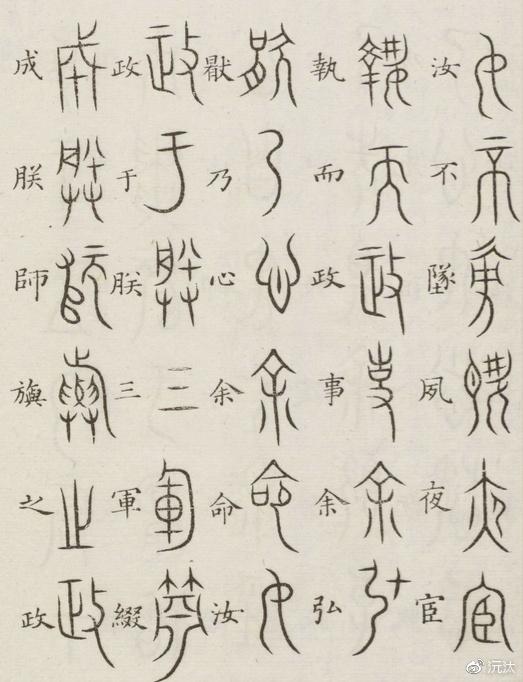 汝不墜夙夜宦
執而政事余弘
厭乃心余命汝
政于朕三軍綴
成朕師旟之政
@沅汰